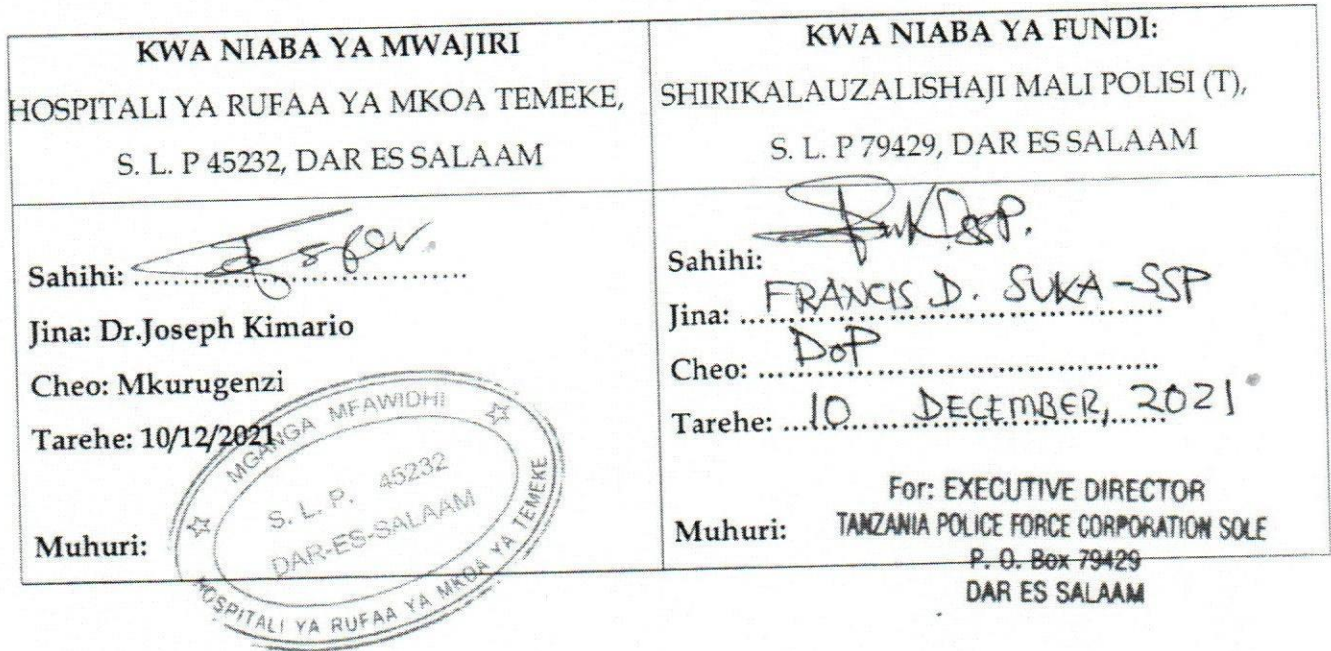 KWA NIABA YA MWAJIRI
HOSPITALI YA RUFAA YA MKOA TEMEKE,
S. L. P 45232, DAR ES SALAAM
KWA NIABA YA FUNDI:
SHIRIKALAUZALISHAJI MALI POLISI (T),
S. L. P 79429, DAR ES SALAAM
Sahihi: ..............................
Jina: Dr.Joseph Kimario
Cheo: Mkurugenzi
Tarehe: 10/12/2021
Muhuri:
MGANGA MFAWIDHI
S. L. P. 45232
DAR-ES-SALAAM
HOSPITALI YA RUFAA YA MKOA YA TEMEKE
Sahihi:
Jina: FRANCIS D. SUKA-SSP
Cheo: DoP
Tarehe: 10 DECEMBER, 2021
Muhuri:
For: EXECUTIVE DIRECTOR
TANZANIA POLICE FORCE CORPORATION SOLE
P. O. Box 79429
DAR ES SALAAM